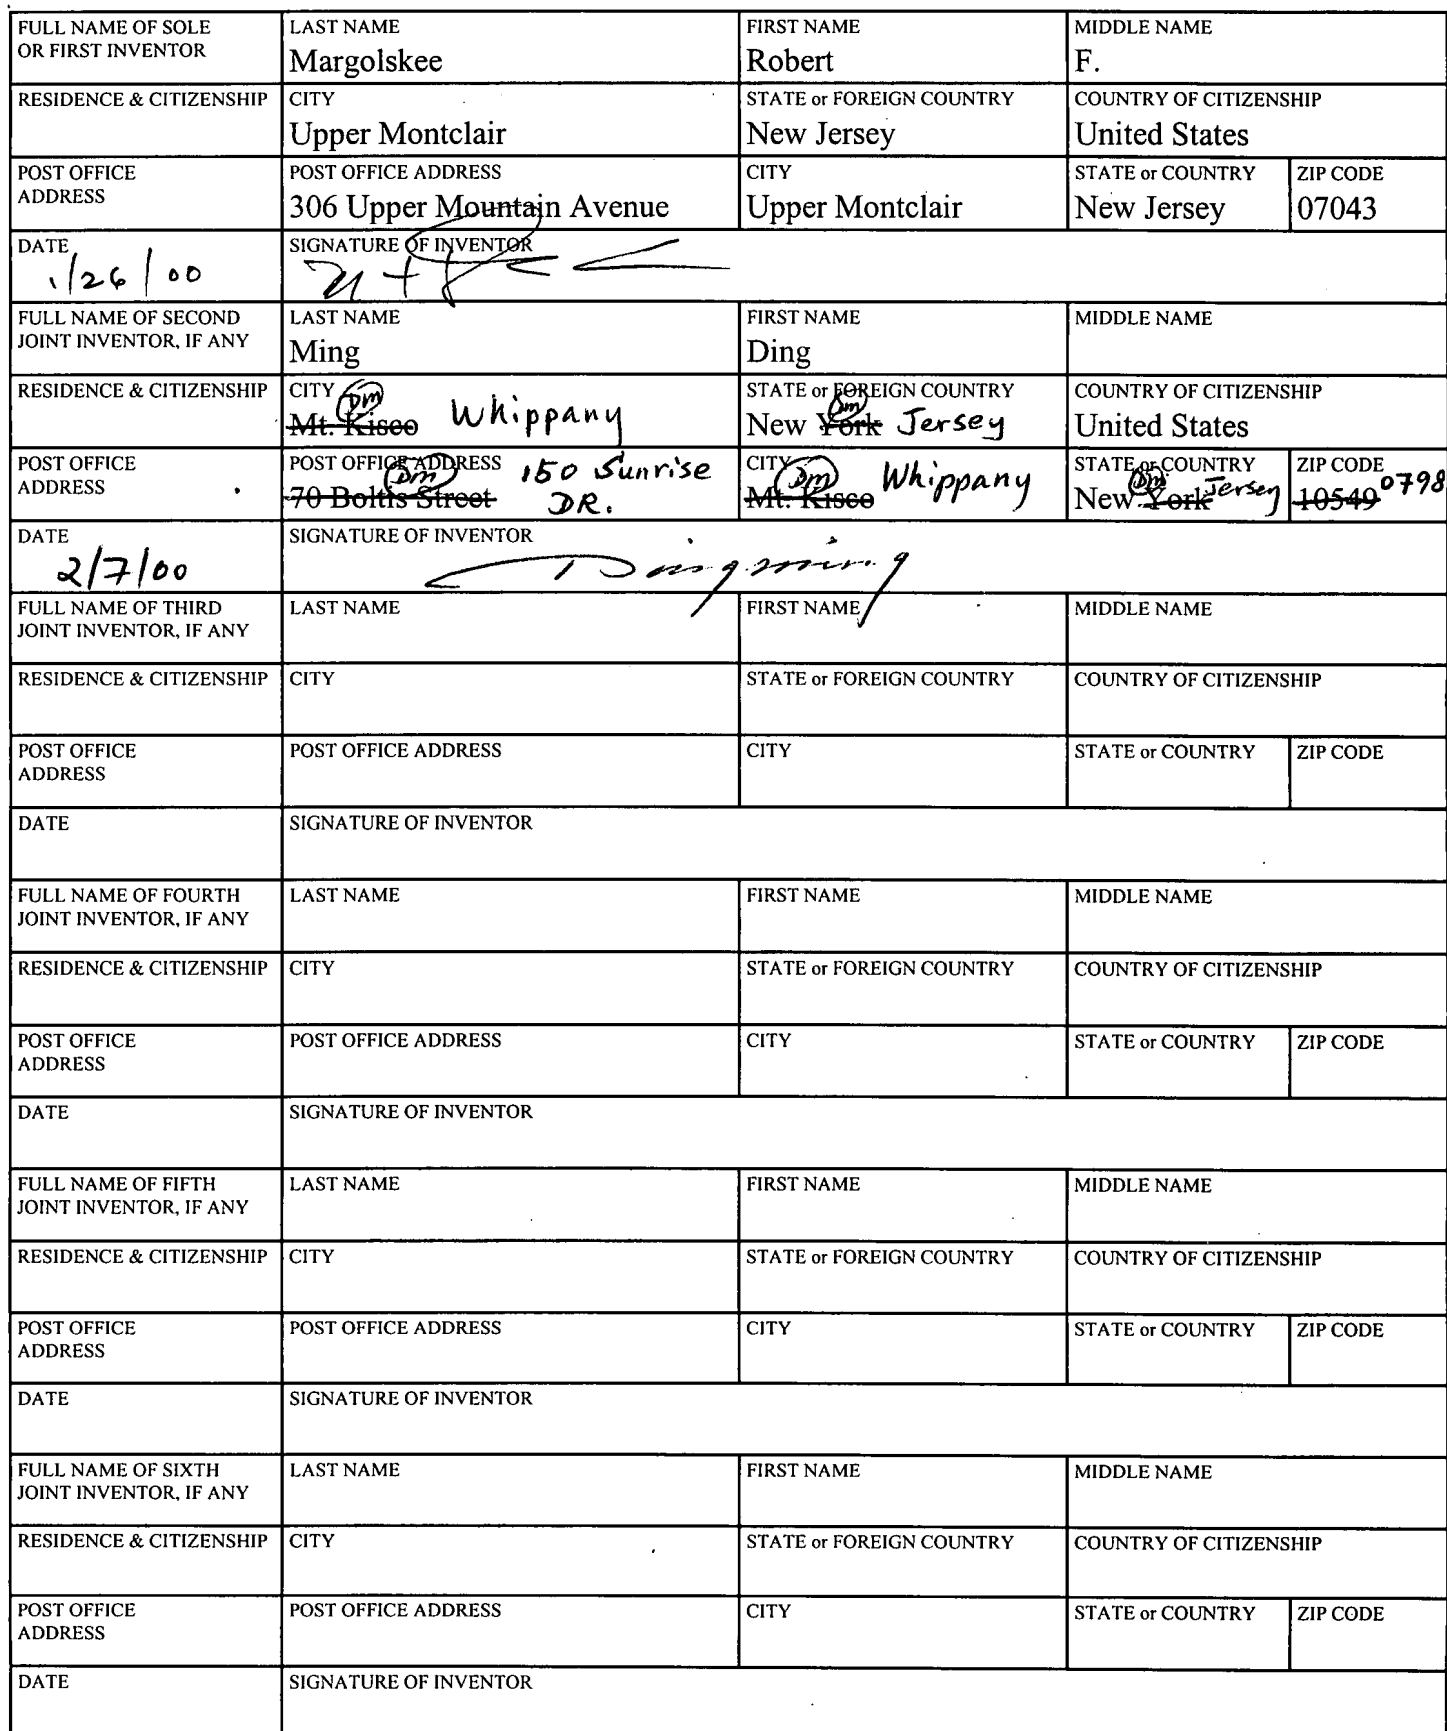 FULL NAME OF SOLE OR FIRST INVENTOR LAST NAME FIRST NAME MIDDLE NAME
Margolskee Robert F.
RESIDENCE & CITIZENSHIP CITY STATE or FOREIGN COUNTRY COUNTRY OF CITIZENSHIP
Upper Montclair New Jersey United States
POST OFFICE ADDRESS POST OFFICE ADDRESS CITY STATE or COUNTRY ZIP CODE
306 Upper Mountain Avenue Upper Montclair New Jersey 07043
DATE SIGNATURE OF INVENTOR
1/26/00
FULL NAME OF SECOND JOINT INVENTOR, IF ANY LAST NAME FIRST NAME MIDDLE NAME
Ming Ding
RESIDENCE & CITIZENSHIP CITY STATE or FOREIGN COUNTRY COUNTRY OF CITIZENSHIP
Mt. Kisco Dm Whippany New York Dm Jersey United States
POST OFFICE ADDRESS POST OFFICE ADDRESS CITY STATE or COUNTRY ZIP CODE
70 Boltis Street Dm 150 Sunrise DR. Mt. Kisco Dm Whippany New York Dm Jersey 10549 0798
DATE SIGNATURE OF INVENTOR
2/7/00 Dingming
FULL NAME OF THIRD JOINT INVENTOR, IF ANY LAST NAME FIRST NAME MIDDLE NAME
RESIDENCE & CITIZENSHIP CITY STATE or FOREIGN COUNTRY COUNTRY OF CITIZENSHIP
POST OFFICE ADDRESS POST OFFICE ADDRESS CITY STATE or COUNTRY ZIP CODE
DATE SIGNATURE OF INVENTOR
FULL NAME OF FOURTH JOINT INVENTOR, IF ANY LAST NAME FIRST NAME MIDDLE NAME
RESIDENCE & CITIZENSHIP CITY STATE or FOREIGN COUNTRY COUNTRY OF CITIZENSHIP
POST OFFICE ADDRESS POST OFFICE ADDRESS CITY STATE or COUNTRY ZIP CODE
DATE SIGNATURE OF INVENTOR
FULL NAME OF FIFTH JOINT INVENTOR, IF ANY LAST NAME FIRST NAME MIDDLE NAME
RESIDENCE & CITIZENSHIP CITY STATE or FOREIGN COUNTRY COUNTRY OF CITIZENSHIP
POST OFFICE ADDRESS POST OFFICE ADDRESS CITY STATE or COUNTRY ZIP CODE
DATE SIGNATURE OF INVENTOR
FULL NAME OF SIXTH JOINT INVENTOR, IF ANY LAST NAME FIRST NAME MIDDLE NAME
RESIDENCE & CITIZENSHIP CITY STATE or FOREIGN COUNTRY COUNTRY OF CITIZENSHIP
POST OFFICE ADDRESS POST OFFICE ADDRESS CITY STATE or COUNTRY ZIP CODE
DATE SIGNATURE OF INVENTOR